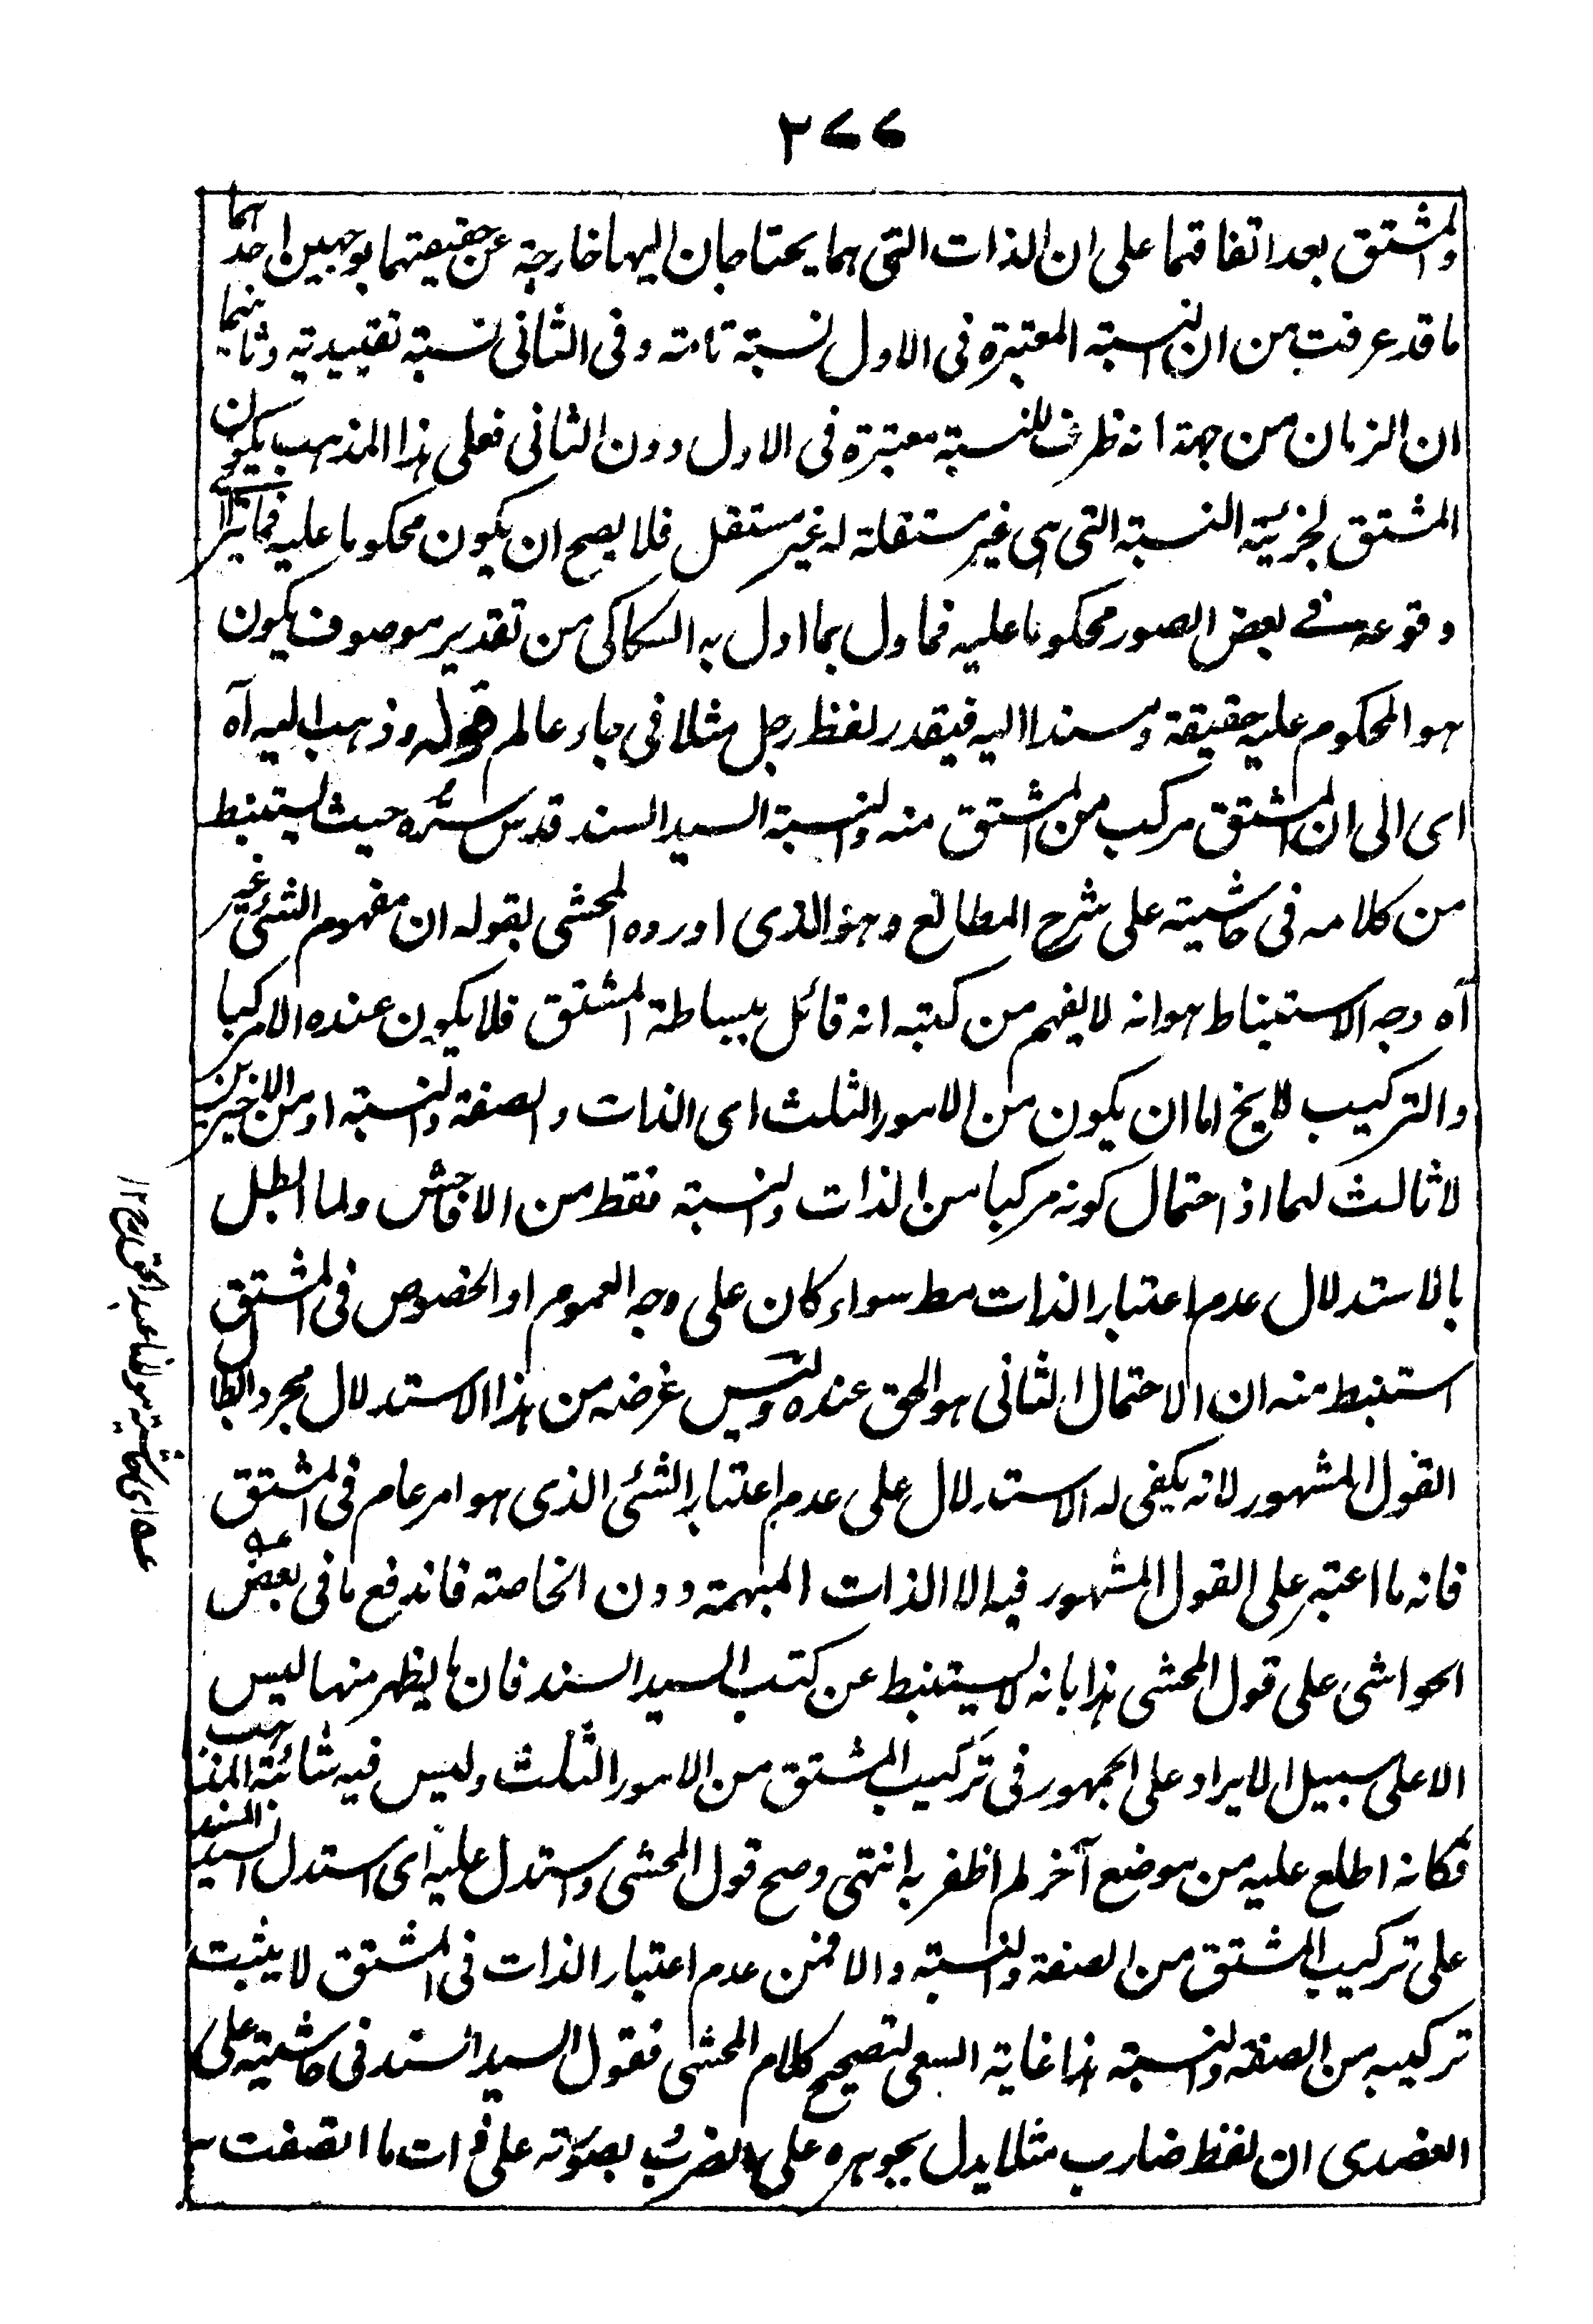 ٣٧٧
والمشتق بعد اتفاقهما على ان الذات التى هما يحتاجان اليها خارجة عن حقيقتهما بوجهين احدهما
ما قد عرفت من ان النسبة المعتبرة فى الاول نسبة تامة وفى الثانى نسبة تقييدية وثانيهما
ان الزمان من جهة انه ظرف للنسبة معتبرة فى الاول دون الثانى فعلى هذا المذهب يكون
المشتق لجزئية النسبة التى هى غير مستقلة له غير مستقل فلا يصح ان يكون محكوما عليه فما يترا اى
وقوعه فى بعض الصور محكوما عليه فماول بما اول به السكاكى من تقدير موصوف يكون
هو المحكوم عليه حقيقة ومسندا اليه فيقدر لفظ رجل مثلا فى جاء عالم قوله وذهب اليه آه
اى الى ان المشتق مركب من المشتق منه والنسبة السيد السند قدس سره حيث يستنبط
من كلامه فى حاشيته على شرح المطالع وهو الذى اورده المحشى بقوله ان مفهوم الشئ غير
آه وجه الاستنباط هو انه لا يفهم من كتبه انه قائل ببساطة المشتق فلا يكون عنده الا مركبا
والتركيب لا يخ اما ان يكون من الامور الثلث اى الذات والصفة والنسبة او من الاخيرين
لا ثالث لهما اذ احتمال كونه مركبا من الذات والنسبة فقط من الافاحش ولما ابطل
بالاستدلال عدم اعتبار الذات مط سواء كان على وجه العموم او الخصوص فى المشتق
استنبط منه ان الاحتمال الثانى هو الحق عنده وليس غرضه من هذا الاستدلال مجرد ابطال
القول المشهور لانه يكفى له الاستدلال على عدم اعتبار الشئ الذى هو امر عام فى المشتق
فانه ما اعتبر على القول المشهور فيه الا الذات المبهمة دون الخاصة فاندفع ما فى بعض عــه
الحواشى على قول المحشى هذا بانه لا يستنبط عن كتب السيد السند فان ما يظهر منها ليس
الا على سبيل الايراد على الجمهور فى تركيب المشتق من الامور الثلث وليس فيه شائبة المذهب
فكانه اطلع عليه من موضع آخر لم اظفر به انتهى وصح قول المحشى واستدل عليه اى استدل السيد السند
على تركيب المشتق من الصفة والنسبة والا فمن عدم اعتبار الذات فى المشتق لا يثبت
تركيبه من الصفة والنسبة هذا غاية السعى لتصحيح كلام المحشى فقول السيد السند فى حاشيته على
العضدى ان لفظ ضارب مثلا يدل بجوهره على الضرب بصورته على ذات ما اتصفت
عــه اى حاشية مولنا عبد الحق رح ١٢